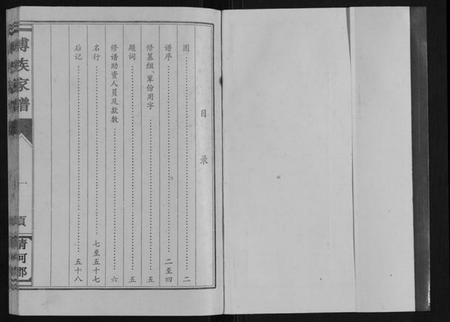 目录
图……二
谱序……二至四
修墓组、辈份用字……五
题词……五
修谱助资人员及款数……六
名行……七至五十七
后记……五十八
傅族家谱
一页
清河郡